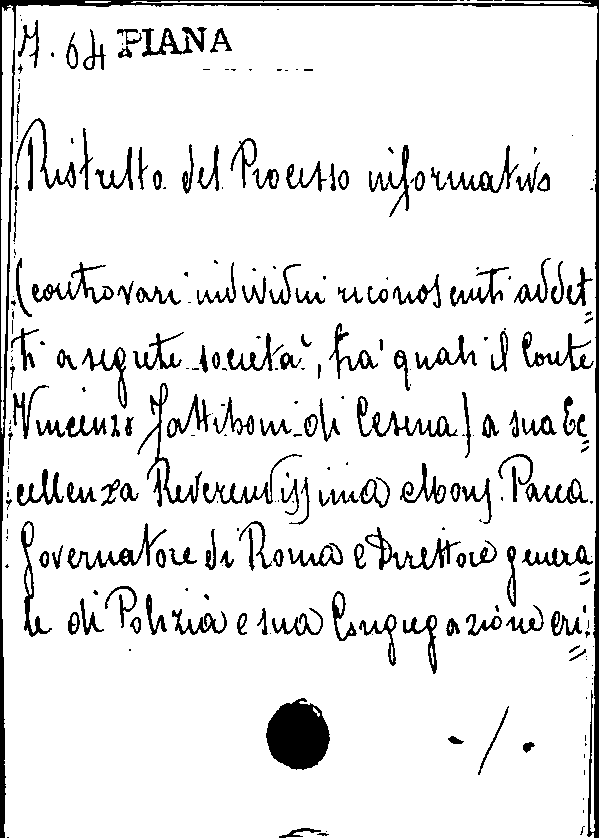 7. 64 PIANA
Ristretto del Processo informativo
(contro vari individui riconosciuti addet=
ti a segrete società, fra' quali il Conte
Vincenzo Fattiboni di Cesena) a sua Ec=
cellenza Reverendissima Mons. Pacca
Governatore di Roma e Direttore genera=
le di Polizia e sua Congregazione cri=
-/.